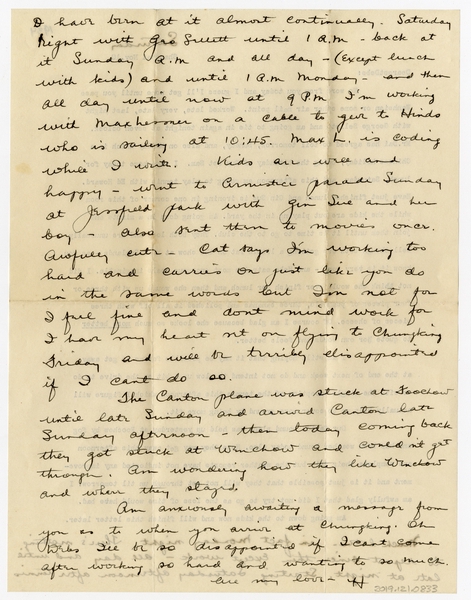 I have been at it almost continually. Saturday
night with Geo Sellett until 1 A.M - back at
it Sunday A.M and all day - (Except lunch
with kids) and until 1 A.M Monday - and then
all day until now at 9 P.M I'm working
with Max on a cable to give to Hinds
who is sailing at 10:45. Max L. is coding
while I write. Kids are well and
happy - went to Armistice parade Sunday
at Jessfield park with Gin Sue and her
boy - also sent them to movies once.
Awfully cute - Cat says I'm working too
hard and carries on just like you do
in the same words but I'm not for
I feel fine and dont mind work for
I have my heart set on flying to Chungking
Friday and will be terribly disappointed
if I cant do so.
The Canton plane was stuck at Foochow
until late Sunday and arrived Canton late
Sunday afternoon - then today coming back
they got stuck at Wenchow and couldn't get
through. Am wondering how they like Wenchow
and where they stayed.
Am anxiously awaiting a message from
you as to when you arrive at Chungking. Oh
Wees I'll be so disappointed if I cant come
after working so hard and wanting to so much.
All my love - H
2019.12.0833